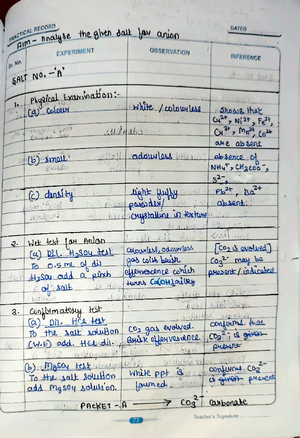 PRACTICAL RECORD
DATED
Aim - Analyse the given salt for anion
Sr. No.
EXPERIMENT
OBSERVATION
INFERENCE
SALT NO. - 'A'
1. Physical Examination:-
(a) Colour
White / colourless
shows that
Cu2+, Ni2+, Fe2+,
Cr3+, Mn2+, Co2+
are absent
(b) smell
odourless
absence of
NH4+, CH3COO-,
S2-,
(c) density
light fluffy
powder/
crystalline in texture
Pb2+, Ba2+
absent.
2. Wet test for Anion
(a) Dil. H2SO4 test
To 0.5 ml of dil
H2SO4 add a pinch
of salt
colourless, odourless
gas with brisk
effervescence which
turns Ca(OH)2 milky
[CO2 is evolved]
CO3 2- may be
present / indicated
3. Confirmatory test
(a) Dil. HCl test
To the salt solution
(W.E) add HCl dil.
CO2 gas evolved.
Brisk effervescence.
confirms that
CO3 2- is
present
(b) MgSO4 test
To the salt solution
add MgSO4 solution.
White ppt is
formed.
confirms CO3 2-
is present
PACKET - A → CO3 2- carbonate
Teacher's Signature